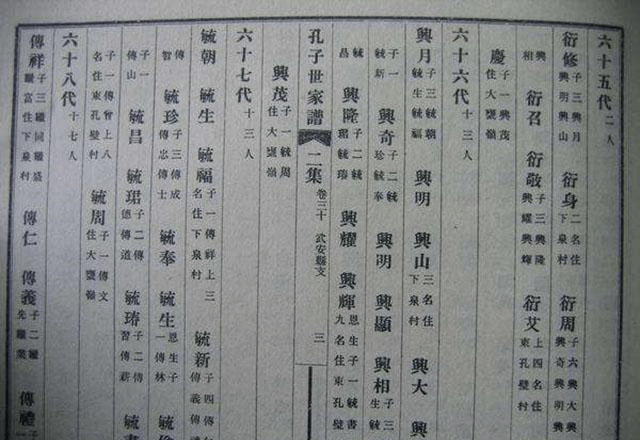 六十五代 二人
衍修 子三興月興明興山 衍身 二名住下泉村 衍周 子六興大興興奇興明興
興相 衍召 衍敬 子三興隆興耀興輝 衍艾 上四名住東孔壁村
慶 子一興茂住大甕嶺
六十六代 十三人
興月 子三毓朝毓生毓福 興明 興山 三名住下泉村 興大 興
子一毓新 興奇 子二毓珍毓奉 興明 興顯 興相 子三生毓
毓昌 興隆 子二毓珺毓 興耀 興輝 恩生子一毓書九名住東孔壁
孔子世家譜 二集 卷三十 武安縣支 三
興茂 子一毓周住大甕嶺
六十七代 十三人
毓朝 毓生 毓福 子一傳祥上三名住下泉村 毓新 子四傳傳義傳
傳智 毓珍 子三傳成傳忠傳士 毓奉 毓生 恩生子一傳林 毓
子一傳山 毓昌 毓珺 子二傳德傳道 毓 子二傳習傳薪 毓書
子一傳曾上八名住東孔壁村 毓周 子一傳文住大甕嶺
六十八代 十七人
傳祥 子三繼同繼盛繼富住下泉村 傳仁 傳義 子二繼先繼業 傳禮 子